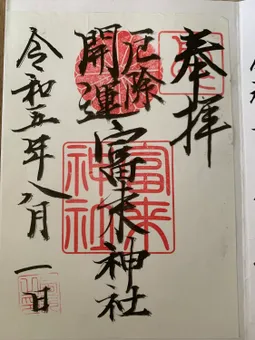 奉拝
厄除
開運
富来神社
令和五年八月一日
富来
神社